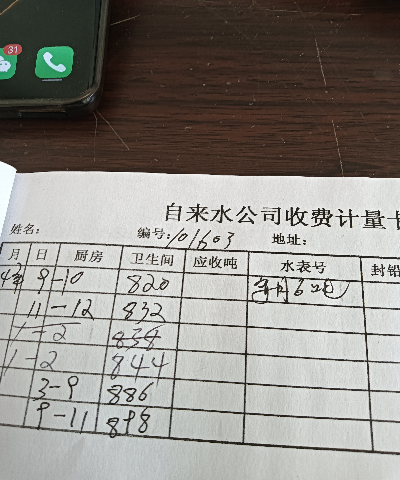 31
自来水公司收费计量卡
姓名: 编号: 101603 地址:
月 日 厨房 卫生间 应收吨 水表号 封铅
9-10 820 每月6吨
11-12 832
1-2 838
1-2 844
3-9 886
9-11 898